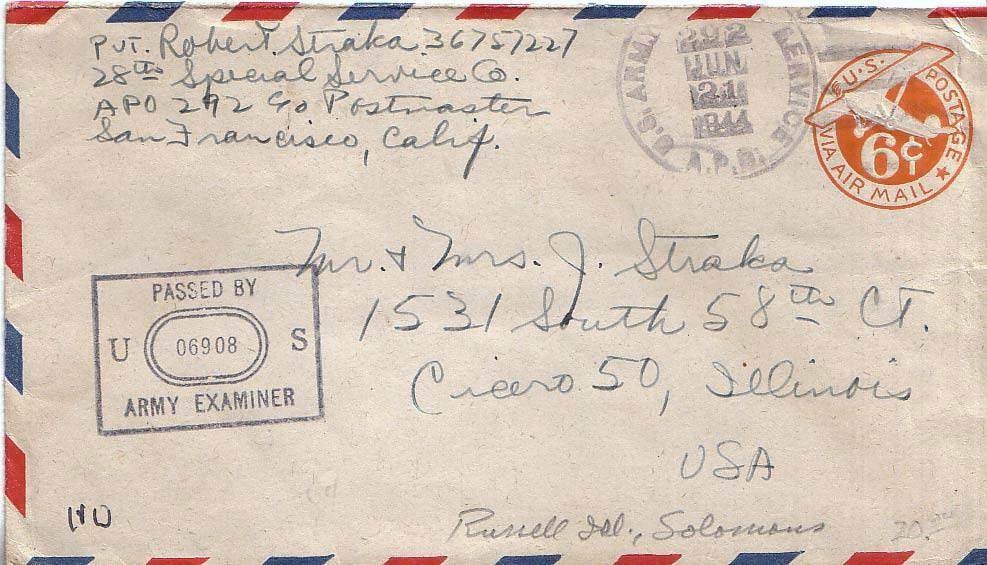 Pvt. Robert Straka 36757227
28th Special Service Co.
APO 292 c/o Postmaster
San Francisco, Calif.
U.S. ARMY
SERVICE
A.P.O.
292
JUN
21
1944
U.S. POSTAGE
6¢
VIA AIR MAIL
Mr. & Mrs. J. Straka
1531 South 58th Ct.
Cicero 50, Illinois
USA
PASSED BY
U 06908 S
ARMY EXAMINER
Russell Isl., Solomons
20.